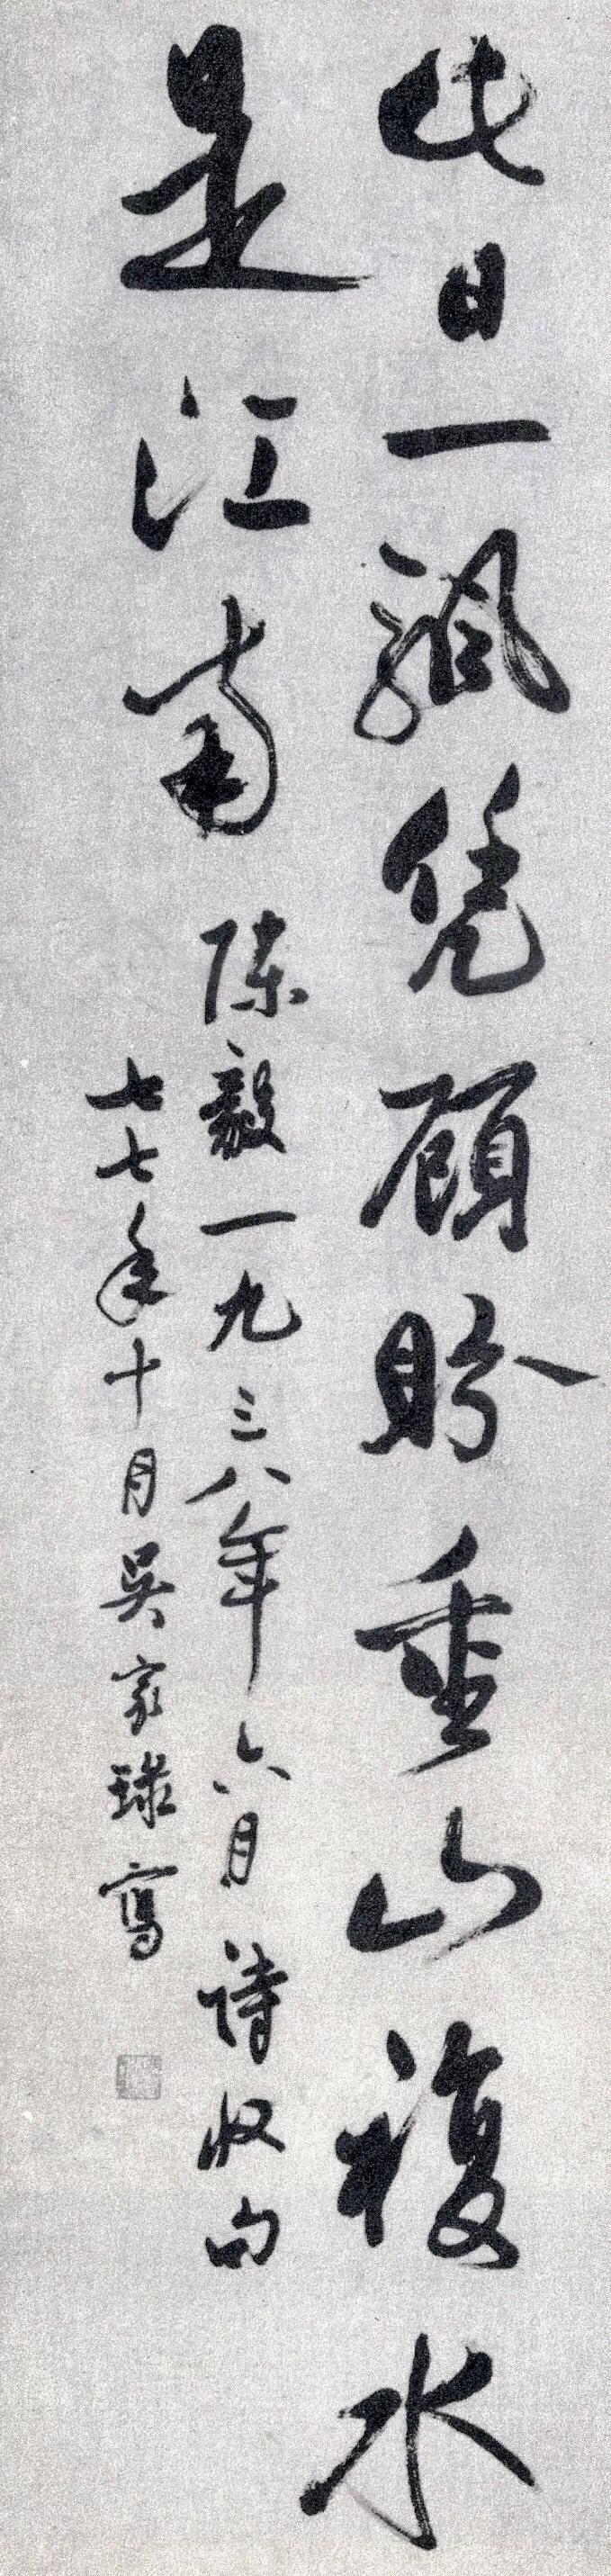 此日一颿凭顧盼重山複水
是江南
陳毅一九三八年六月詩收句
七七年十月吳家琭寫